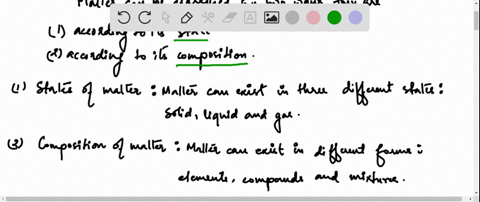 (1) according to its state
(2) according to its composition.
(1) States of matter : Matter can exist in three different states :
Solid, liquid and gas.
(3) Composition of matter : Matter can exist in different forms :
elements, compounds and mixtures.